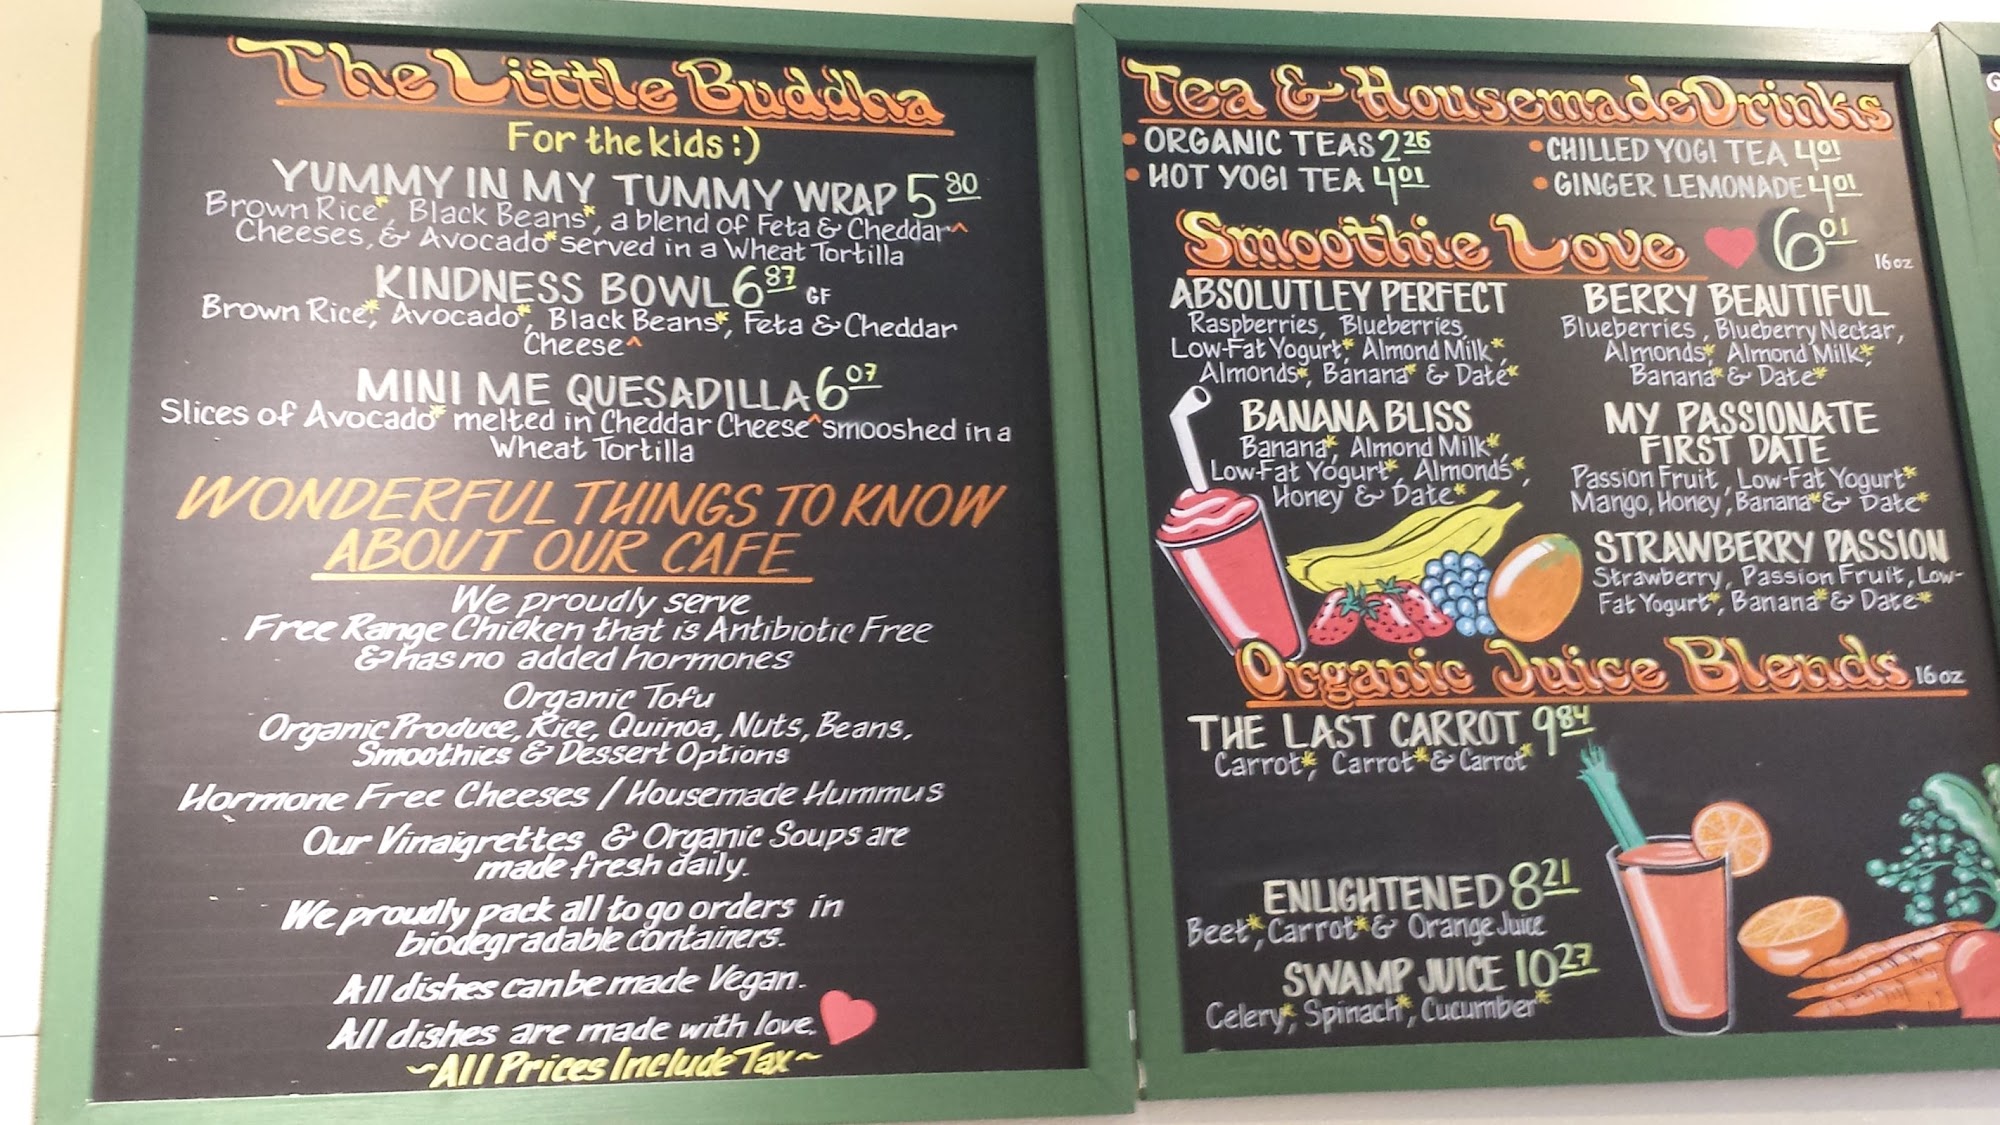 The Little Buddha
For the kids :)
YUMMY IN MY TUMMY WRAP 5 80
Brown Rice*, Black Beans*, a blend of Feta & Cheddar^
Cheeses, & Avocado* served in a Wheat Tortilla
KINDNESS BOWL 6 87 GF
Brown Rice*, Avocado*, Black Beans*, Feta & Cheddar
Cheese^
MINI ME QUESADILLA 6 07
Slices of Avocado* melted in Cheddar Cheese^ smooshed in a
Wheat Tortilla
WONDERFUL THINGS TO KNOW
ABOUT OUR CAFE
We proudly serve
Free Range Chicken that is Antibiotic Free
& has no added hormones
Organic Tofu
Organic Produce, Rice, Quinoa, Nuts, Beans,
Smoothies & Dessert Options
Hormone Free Cheeses / Housemade Hummus
Our Vinaigrettes & Organic Soups are
made fresh daily.
We proudly pack all to go orders in
biodegradable containers.
All dishes can be made Vegan.
All dishes are made with love.
~All Prices Include Tax~
Tea & Housemade Drinks
• ORGANIC TEAS 2 26
• HOT YOGI TEA 4 01
• CHILLED YOGI TEA 4 01
• GINGER LEMONADE 4 01
Smoothie Love 6 01
16 oz
ABSOLUTLEY PERFECT
Raspberries, Blueberries,
Low-Fat Yogurt*, Almond Milk*,
Almonds*, Banana* & Date*
BERRY BEAUTIFUL
Blueberries, Blueberry Nectar,
Almonds*, Almond Milk*,
Banana* & Date*
BANANA BLISS
Banana*, Almond Milk*,
Low-Fat Yogurt*, Almonds*,
Honey & Date*
MY PASSIONATE
FIRST DATE
Passion Fruit, Low-Fat Yogurt*
Mango, Honey, Banana* & Date*
STRAWBERRY PASSION
Strawberry, Passion Fruit, Low-
Fat Yogurt*, Banana* & Date*
Organic Juice Blends 16 oz
THE LAST CARROT 9 84
Carrot*, Carrot* & Carrot*
ENLIGHTENED 8 21
Beet*, Carrot* & Orange Juice
SWAMP JUICE 10 27
Celery*, Spinach*, Cucumber*